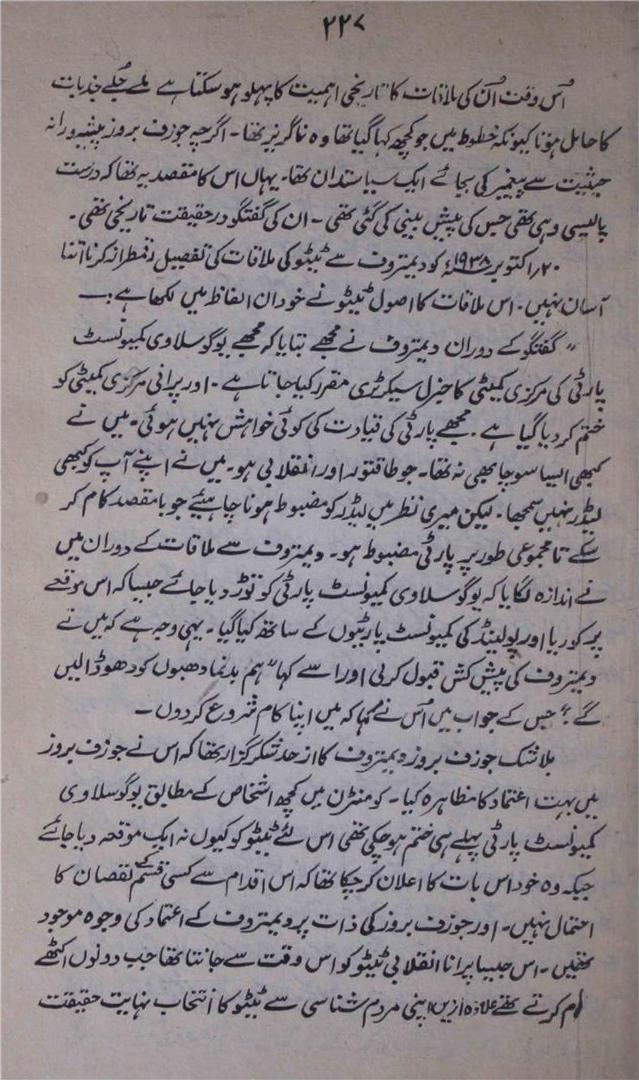 ۲۲۷
اُس وقت اُن کی ملاقات کا تاریخی اہمیت کا پہلو ہو سکتا ہے ملے جُلے جذبات
کا حامل ہونا کیونکہ خطوط میں جو کچھ کہا گیا تھا وہ ناگزیر تھا۔ اگرچہ جوزف بروز پیشہ ورانہ
حیثیت سے پیغمبر کی بجائے ایک سیاستدان تھا۔ یہاں اس کا مقصد یہ تھا کہ درست
پالیسی وہی تھی جس کی پیش بینی کی گئی تھی۔ ان کی گفتگو درحقیقت تاریخی تھی۔
۲۰؍ اکتوبر ۱۹۳۸ء کو دیمتروف سے ٹیٹو کی ملاقات کی تفصیل نظرانہ کرنا اتنا
آسان نہیں۔ اس ملاقات کا اصول ٹیٹو نے خود ان الفاظ میں لکھا ہے:۔
"گفتگو کے دوران دیمتروف نے مجھے بتایا کہ مجھے یوگوسلاوی کمیونسٹ
پارٹی کی مرکزی کمیٹی کا جنرل سیکرٹری مقرر کیا جاتا ہے۔ اور پرانی مرکزی کمیٹی کو
ختم کر دیا گیا ہے۔ مجھے پارٹی کی قیادت کی کوئی خواہش نہیں ہوئی۔ میں نے
کبھی ایسا سوچا بھی نہ تھا۔ جو طاقتور اور انقلابی ہو۔ میں نے اپنے آپ کو کبھی
لیڈر نہیں سمجھا۔ لیکن میری نظر میں لیڈر کو مضبوط ہونا چاہیئے جو با مقصد کام کر
سکے تا مجموعی طور پر پارٹی مضبوط ہو۔ دیمتروف سے ملاقات کے دوران میں
نے اندازہ لگایا کہ یوگوسلاوی کمیونسٹ پارٹی کو توڑ دیا جائے جیسا کہ اس موقعے
پر کوریا اور پولینڈ کی کمیونسٹ پارٹیوں کے ساتھ کیا گیا۔ یہی وجہ ہے کہ میں نے
دیمتروف کی پیش کش قبول کر لی اور اسے کہا "ہم بدنما دھبوں کو دھو ڈالیں
گے" جس کے جواب میں اُس نے کہا کہ میں اپنا کام شروع کر دوں۔
بلا شک جوزف بروز دیمتروف کا از حد شکر گزار تھا کہ اس نے جوزف بروز
میں بہت اعتماد کا مظاہرہ کیا۔ کومنٹرن میں کچھ اشخاص کے مطابق یوگوسلاوی
کمیونسٹ پارٹی پہلے ہی ختم ہو چکی تھی اس لئے ٹیٹو کو کیوں نہ ایک موقعہ دیا جائے
جبکہ وہ خود اس بات کا اعلان کر چکا تھا کہ اس اقدام سے کسی قسم کے نقصان کا
احتمال نہیں۔ اور جوزف بروز کی ذات پر دیمتروف کے اعتماد کی وجوہ موجود
تھیں۔ اس جیسا پرانا انقلابی ٹیٹو کو اس وقت سے جانتا تھا جب دونوں اکٹھے
کام کرتے تھے علاوہ ازیں اپنی مردم شناسی سے ٹیٹو کا انتخاب نہایت حقیقت